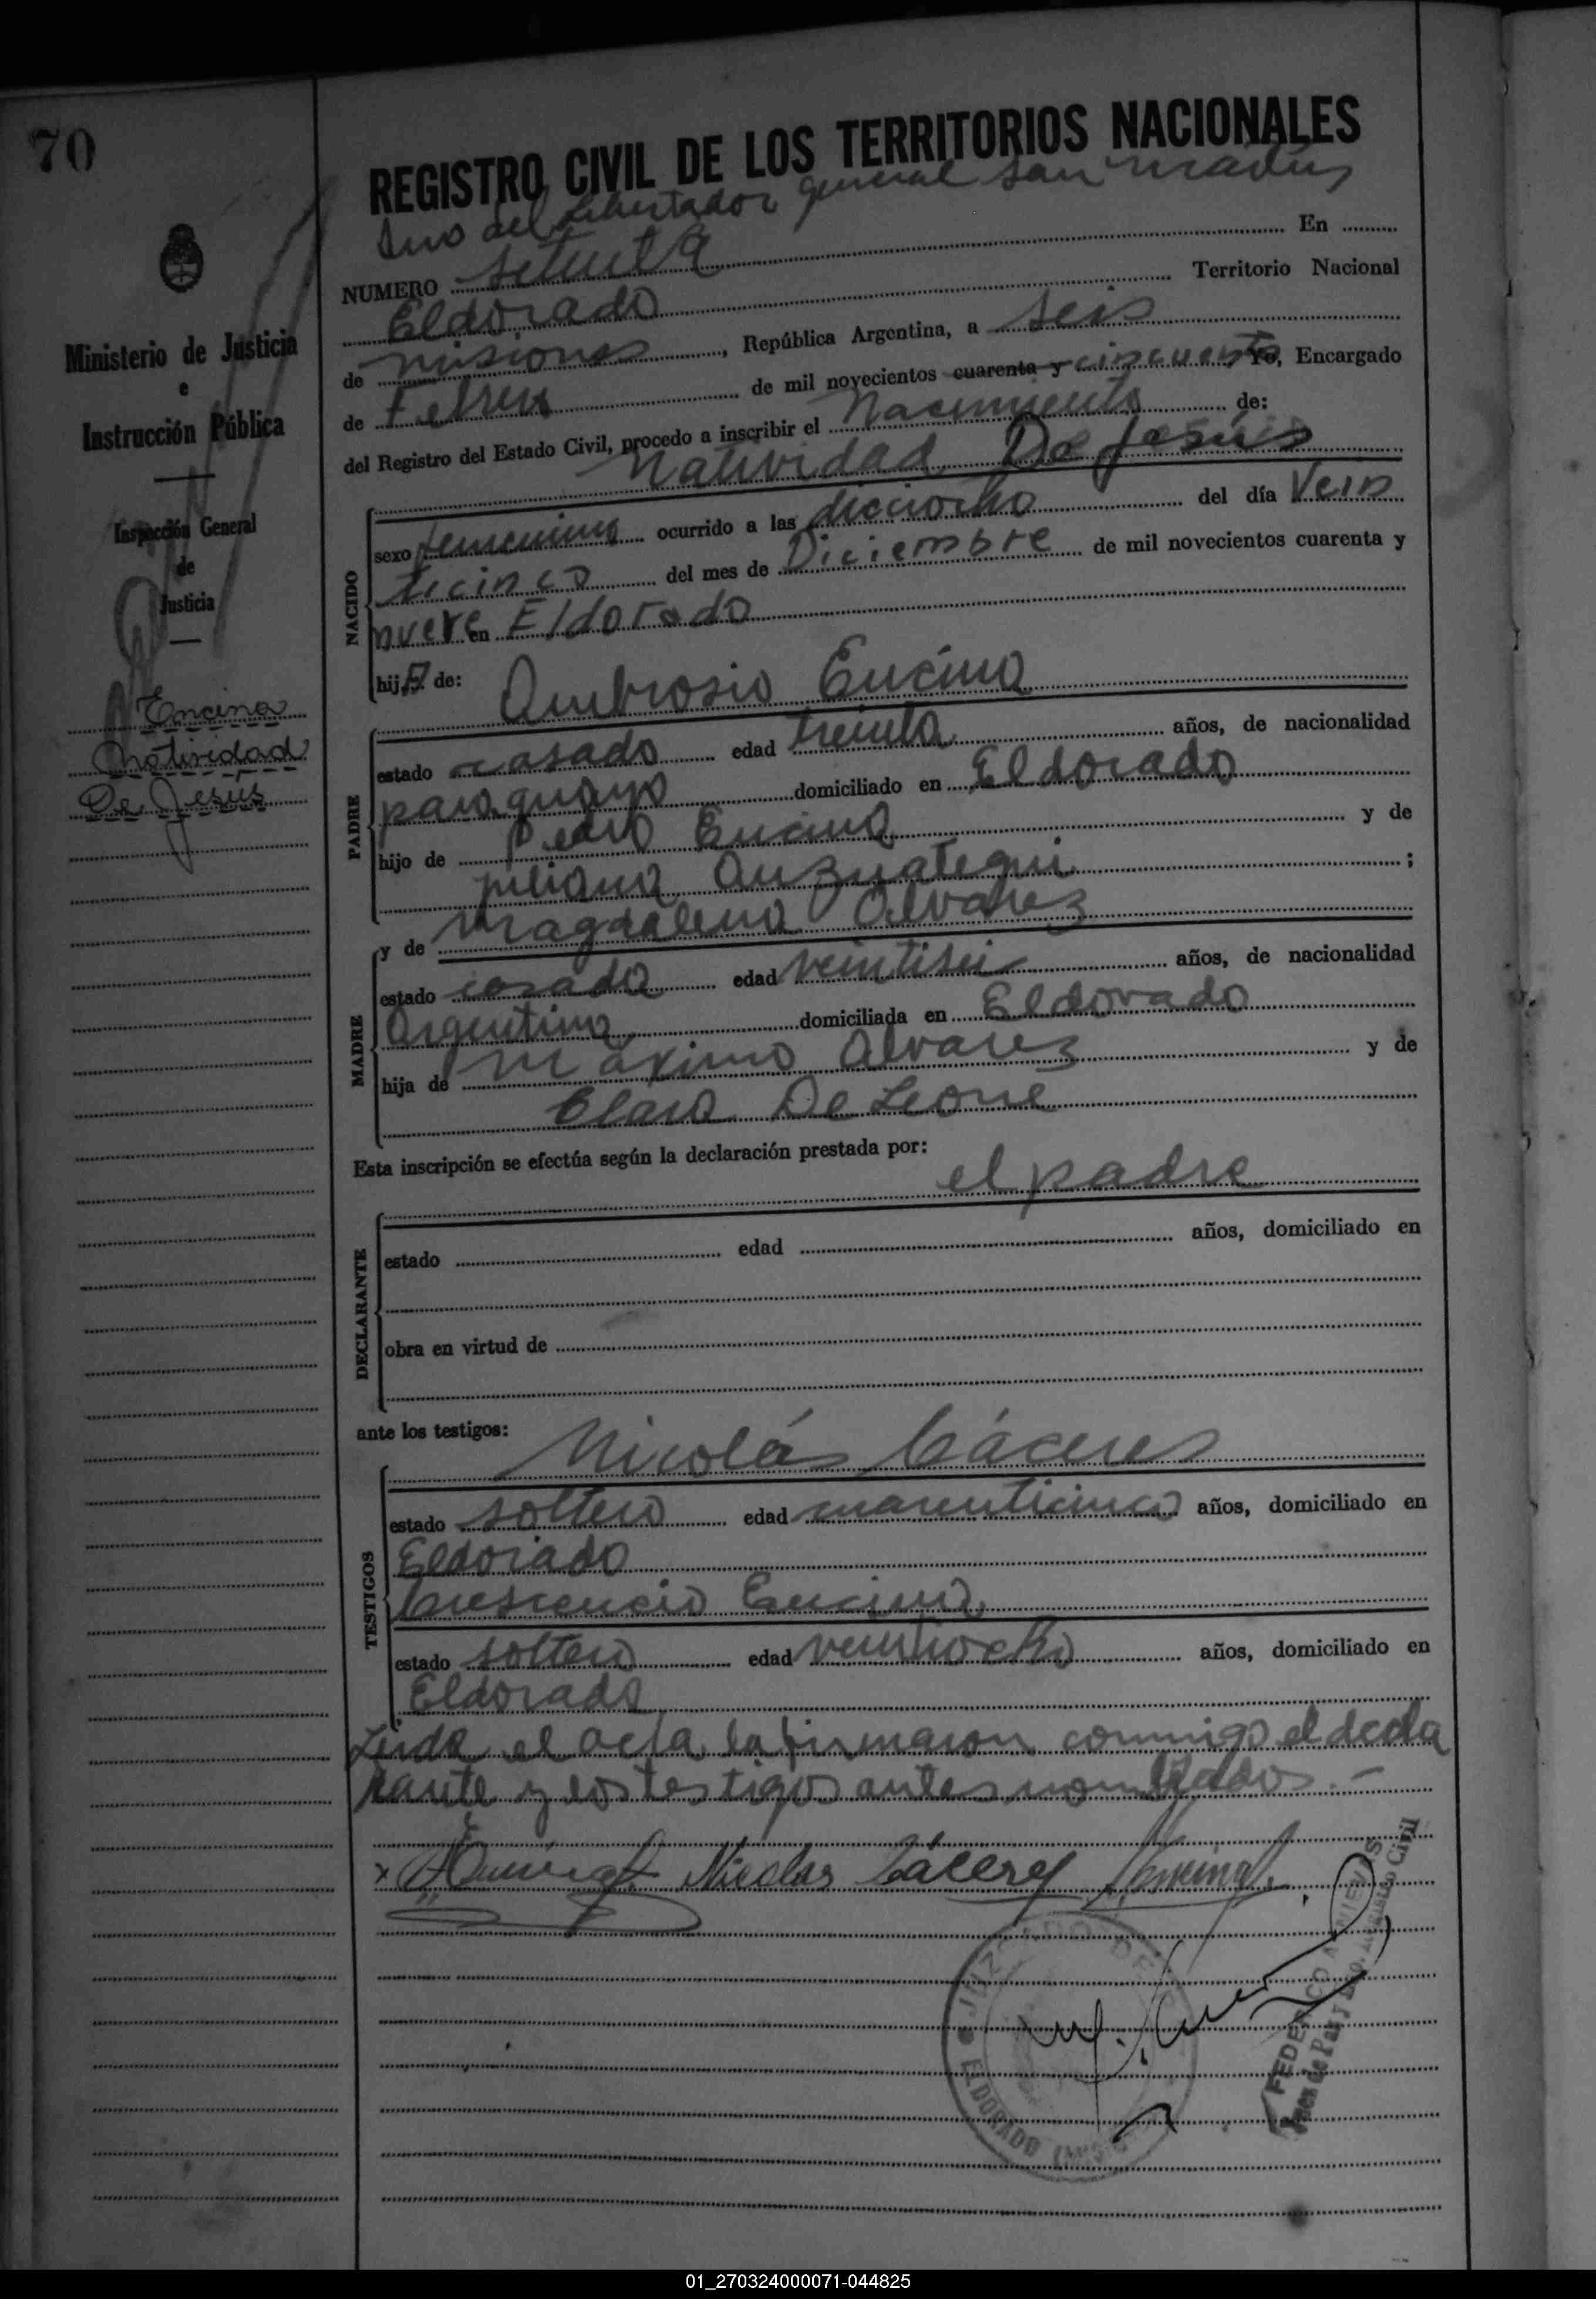 70
REGISTRO CIVIL DE LOS TERRITORIOS NACIONALES
del Libertador general san martín
NUMERO setenta En
Eldorado Territorio Nacional
de misiones, República Argentina, a seis
de Febrero de mil novecientos cuarenta y cincuenta Yo, Encargado
del Registro del Estado Civil, procedo a inscribir el Nacimiento de:
Natividad De Jesús
NACIDO
sexo femenino ocurrido a las dieciocho del día Vein
ticinco del mes de Diciembre de mil novecientos cuarenta y
nueve en Eldorado
hija de:
Ambrosio Encina
PADRE
estado casado edad treinta años, de nacionalidad
paraguayo domiciliado en Eldorado
hijo de Pedro Encina y de
juliana Anzuategui;
y de magdalena Alvarez
MADRE
estado casada edad veintiseis años, de nacionalidad
Argentina domiciliada en Eldorado
hija de máximo Alvarez y de
Clara De Leone
Esta inscripción se efectúa según la declaración prestada por:
el padre
DECLARANTE
estado edad años, domiciliado en
obra en virtud de
ante los testigos:
Nicolás Cáceres
TESTIGOS
estado soltero edad cuarenticinco años, domiciliado en
Eldorado
Crescencio Encina
estado soltero edad veintiocho años, domiciliado en
Eldorado
Leida el acta la firmaron conmigo el decla
rante y los testigos antes nombrados.-
Nicolas Cáceres Encina
JUZGADO DE
ELDORADO
FEDERICO
Juez de Paz y Registro Civil
Ministerio de Justicia
e
Instrucción Pública
Inspección General
de
Justicia
Encina
Natividad
De Jesús
01_270324000071-044825